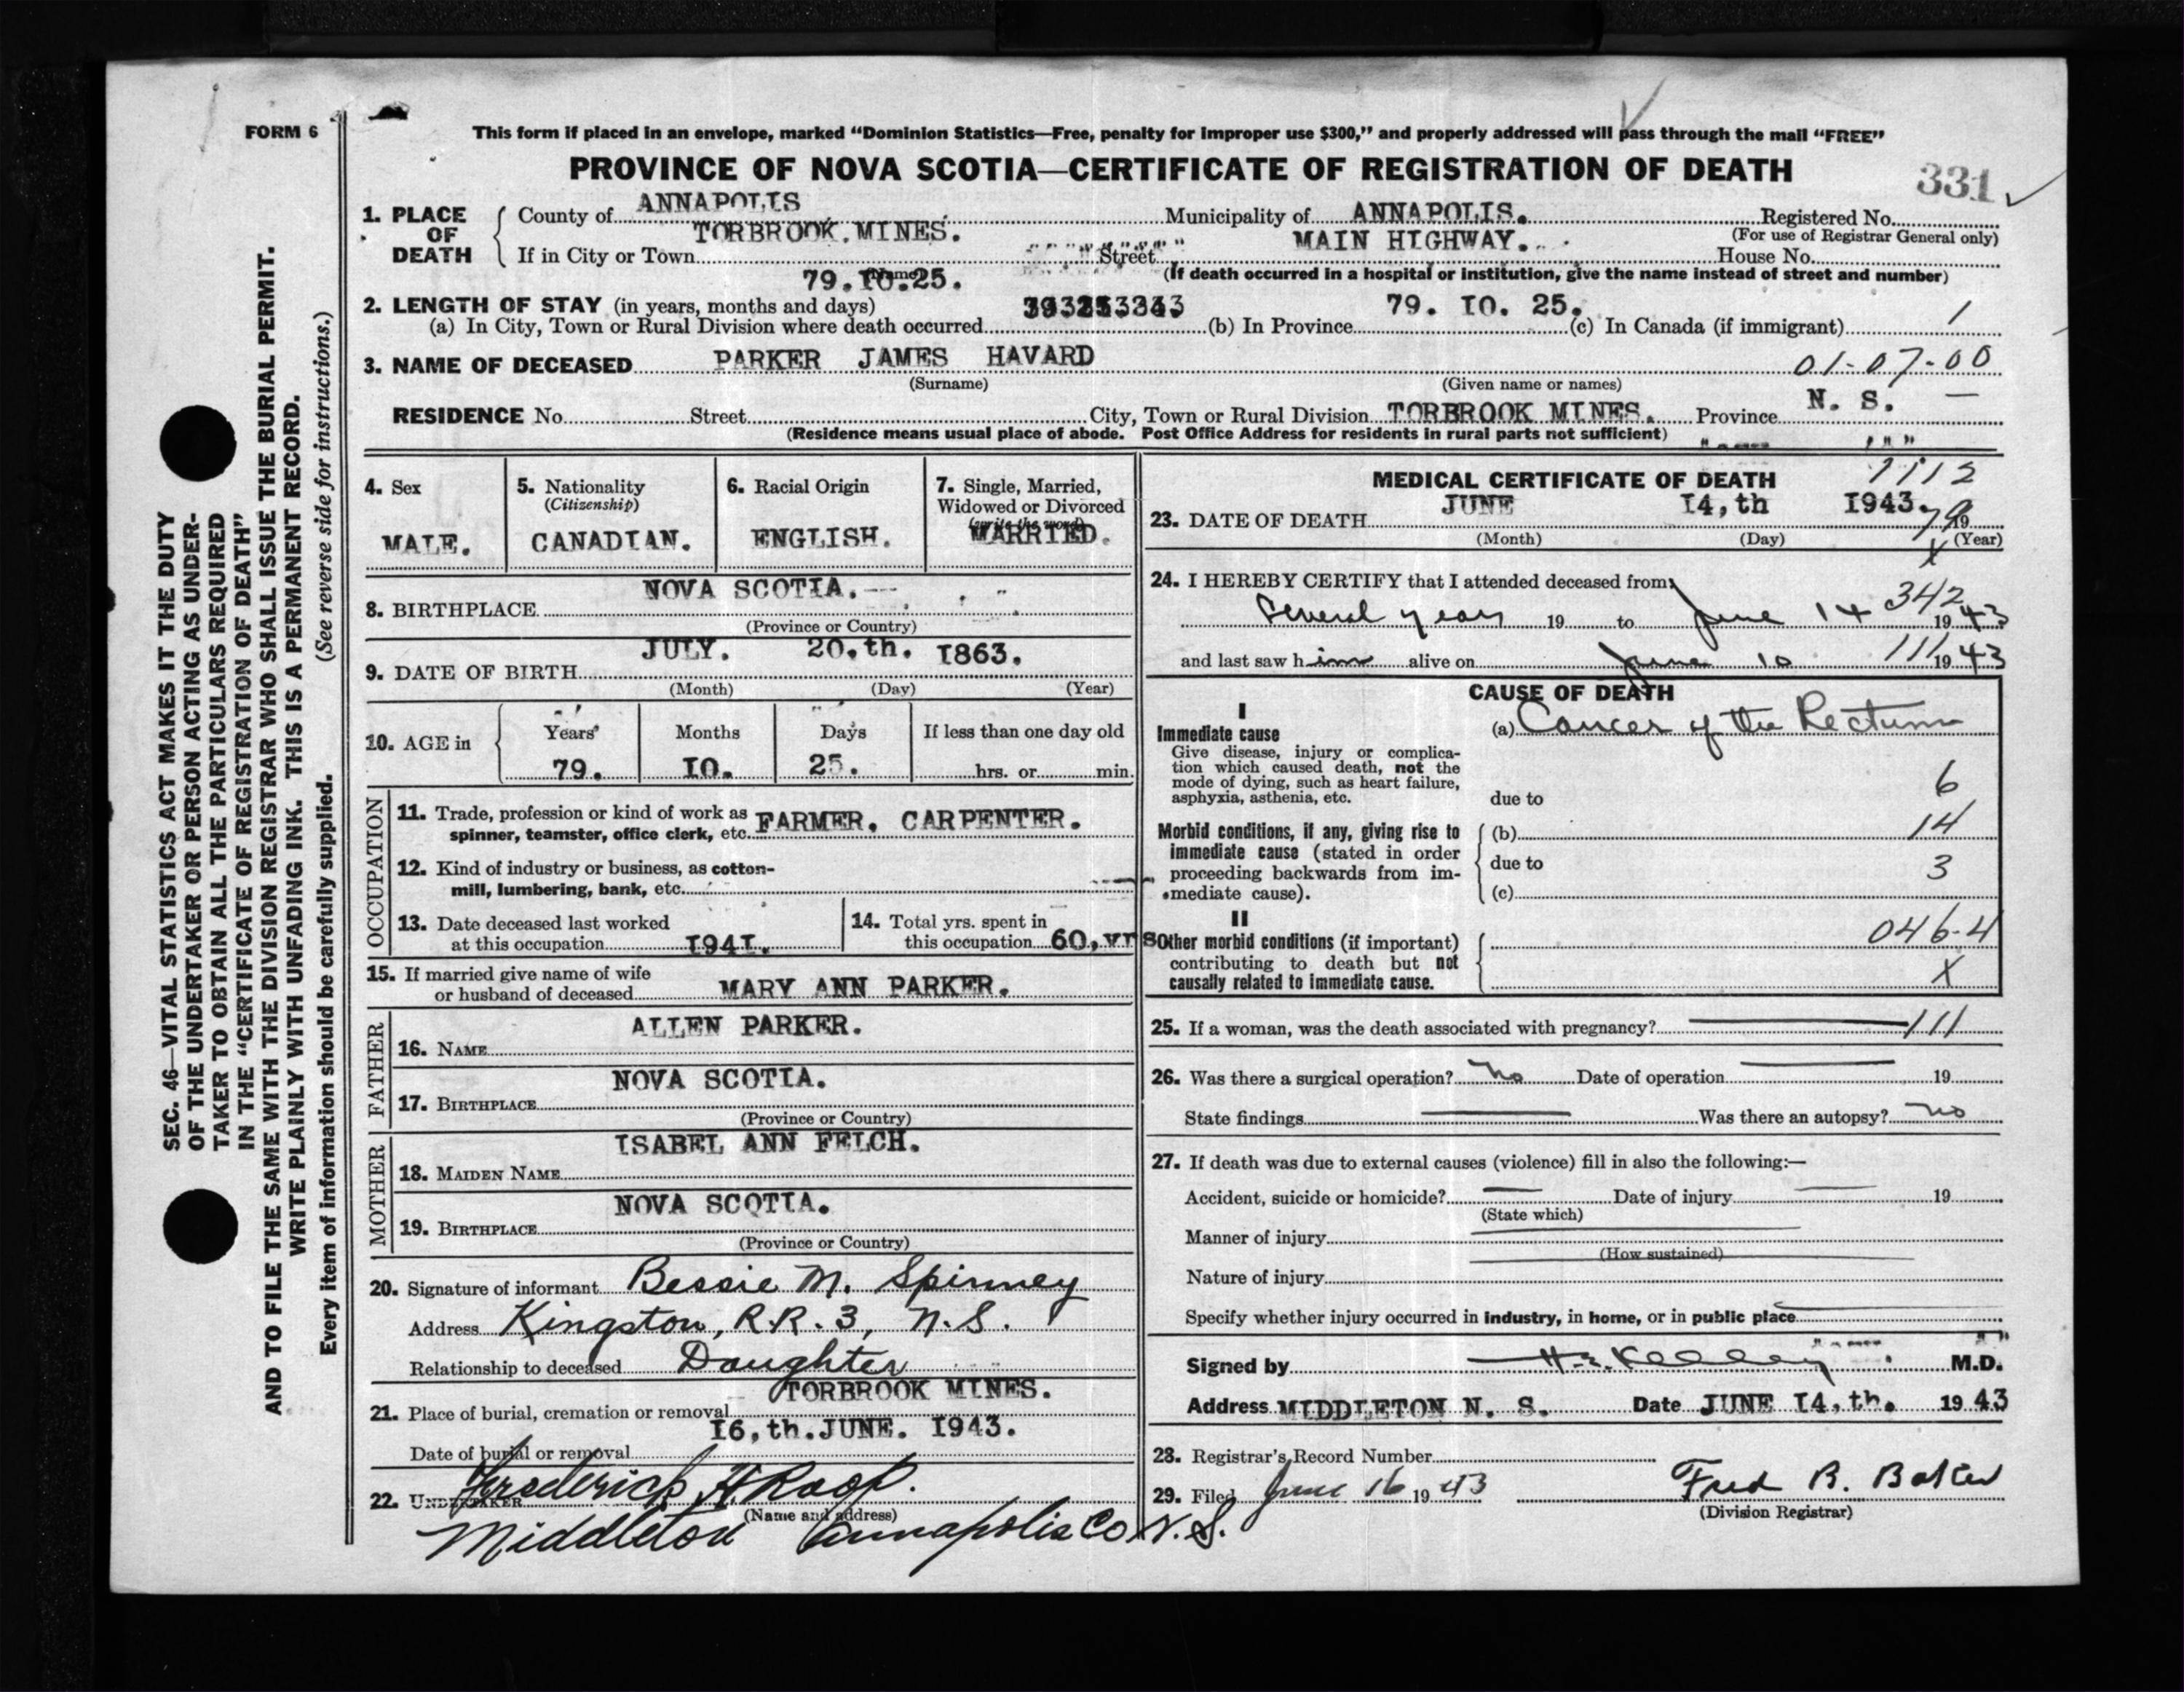 FORM 6
This form if placed in an envelope, marked “Dominion Statistics—Free, penalty for improper use $300,” and properly addressed will pass through the mail “FREE”
PROVINCE OF NOVA SCOTIA—CERTIFICATE OF REGISTRATION OF DEATH
331
1. PLACE OF DEATH
County of ANNAPOLIS Municipality of ANNAPOLIS. Registered No.
(For use of Registrar General only)
If in City or Town TORBROOK MINES. Street MAIN HIGHWAY. House No.
79.10.25. (If death occurred in a hospital or institution, give the name instead of street and number)
2. LENGTH OF STAY (in years, months and days)
(a) In City, Town or Rural Division where death occurred (b) In Province 79. 10. 25. (c) In Canada (if immigrant) 1
3. NAME OF DECEASED PARKER JAMES HAVARD 01-07-00
(Surname) (Given name or names)
RESIDENCE No. Street City, Town or Rural Division TORBROOK MINES. Province N. S. —
(Residence means usual place of abode. Post Office Address for residents in rural parts not sufficient)
4. Sex
MALE.
5. Nationality
(Citizenship)
CANADIAN.
6. Racial Origin
ENGLISH.
7. Single, Married,
Widowed or Divorced
(write the word)
MARRIED.
8. BIRTHPLACE NOVA SCOTIA.
(Province or Country)
9. DATE OF BIRTH JULY. 20.th. 1863.
(Month) (Day) (Year)
10. AGE in
Years Months Days If less than one day old
79. 10. 25. hrs. or min.
OCCUPATION
11. Trade, profession or kind of work as
spinner, teamster, office clerk, etc. FARMER, CARPENTER.
12. Kind of industry or business, as cotton-
mill, lumbering, bank, etc.
13. Date deceased last worked
at this occupation 1941.
14. Total yrs. spent in
this occupation 60, yrs
15. If married give name of wife
or husband of deceased MARY ANN PARKER.
FATHER
16. NAME ALLEN PARKER.
17. BIRTHPLACE NOVA SCOTIA.
(Province or Country)
MOTHER
18. MAIDEN NAME ISABEL ANN FELCH.
19. BIRTHPLACE NOVA SCOTIA.
(Province or Country)
20. Signature of informant Bessie M. Spinney
Address Kingston, R.R. 3, N.S.
Relationship to deceased Daughter
21. Place of burial, cremation or removal TORBROOK MINES.
Date of burial or removal 16,th.JUNE. 1943.
22. UNDERTAKER Frederick H Roop.
(Name and address)
Middleton Annapolis Co N.S.
MEDICAL CERTIFICATE OF DEATH 1112
23. DATE OF DEATH JUNE 14,th 1943. 19 79
(Month) (Day) (Year)
X
24. I HEREBY CERTIFY that I attended deceased from:
342
Several years 19 to June 14 1943
and last saw him alive on June 10 1943
111
CAUSE OF DEATH
I
Immediate cause
Give disease, injury or complica-
tion which caused death, not the
mode of dying, such as heart failure,
asphyxia, asthenia, etc.
(a) Cancer of the Rectum
6
due to
Morbid conditions, if any, giving rise to
immediate cause (stated in order
proceeding backwards from im-
mediate cause).
(b) 14
due to 3
(c)
II
Other morbid conditions (if important)
contributing to death but not
causally related to immediate cause.
046-4
X
25. If a woman, was the death associated with pregnancy? 111
26. Was there a surgical operation? No Date of operation 19
State findings Was there an autopsy? no
27. If death was due to external causes (violence) fill in also the following:—
Accident, suicide or homicide? Date of injury 19
(State which)
Manner of injury
(How sustained)
Nature of injury
Specify whether injury occurred in industry, in home, or in public place
Signed by Kelley M.D.
Address MIDDLETON N. S. Date JUNE 14,th. 1943
28. Registrar's Record Number
29. Filed June 16 1943 Fred R. Baker
(Division Registrar)
SEC. 46—VITAL STATISTICS ACT MAKES IT THE DUTY
OF THE UNDERTAKER OR PERSON ACTING AS UNDER-
TAKER TO OBTAIN ALL THE PARTICULARS REQUIRED
IN THE “CERTIFICATE OF REGISTRATION OF DEATH”
AND TO FILE THE SAME WITH THE DIVISION REGISTRAR WHO SHALL ISSUE THE BURIAL PERMIT.
WRITE PLAINLY WITH UNFADING INK. THIS IS A PERMANENT RECORD.
Every item of information should be carefully supplied. (See reverse side for instructions.)